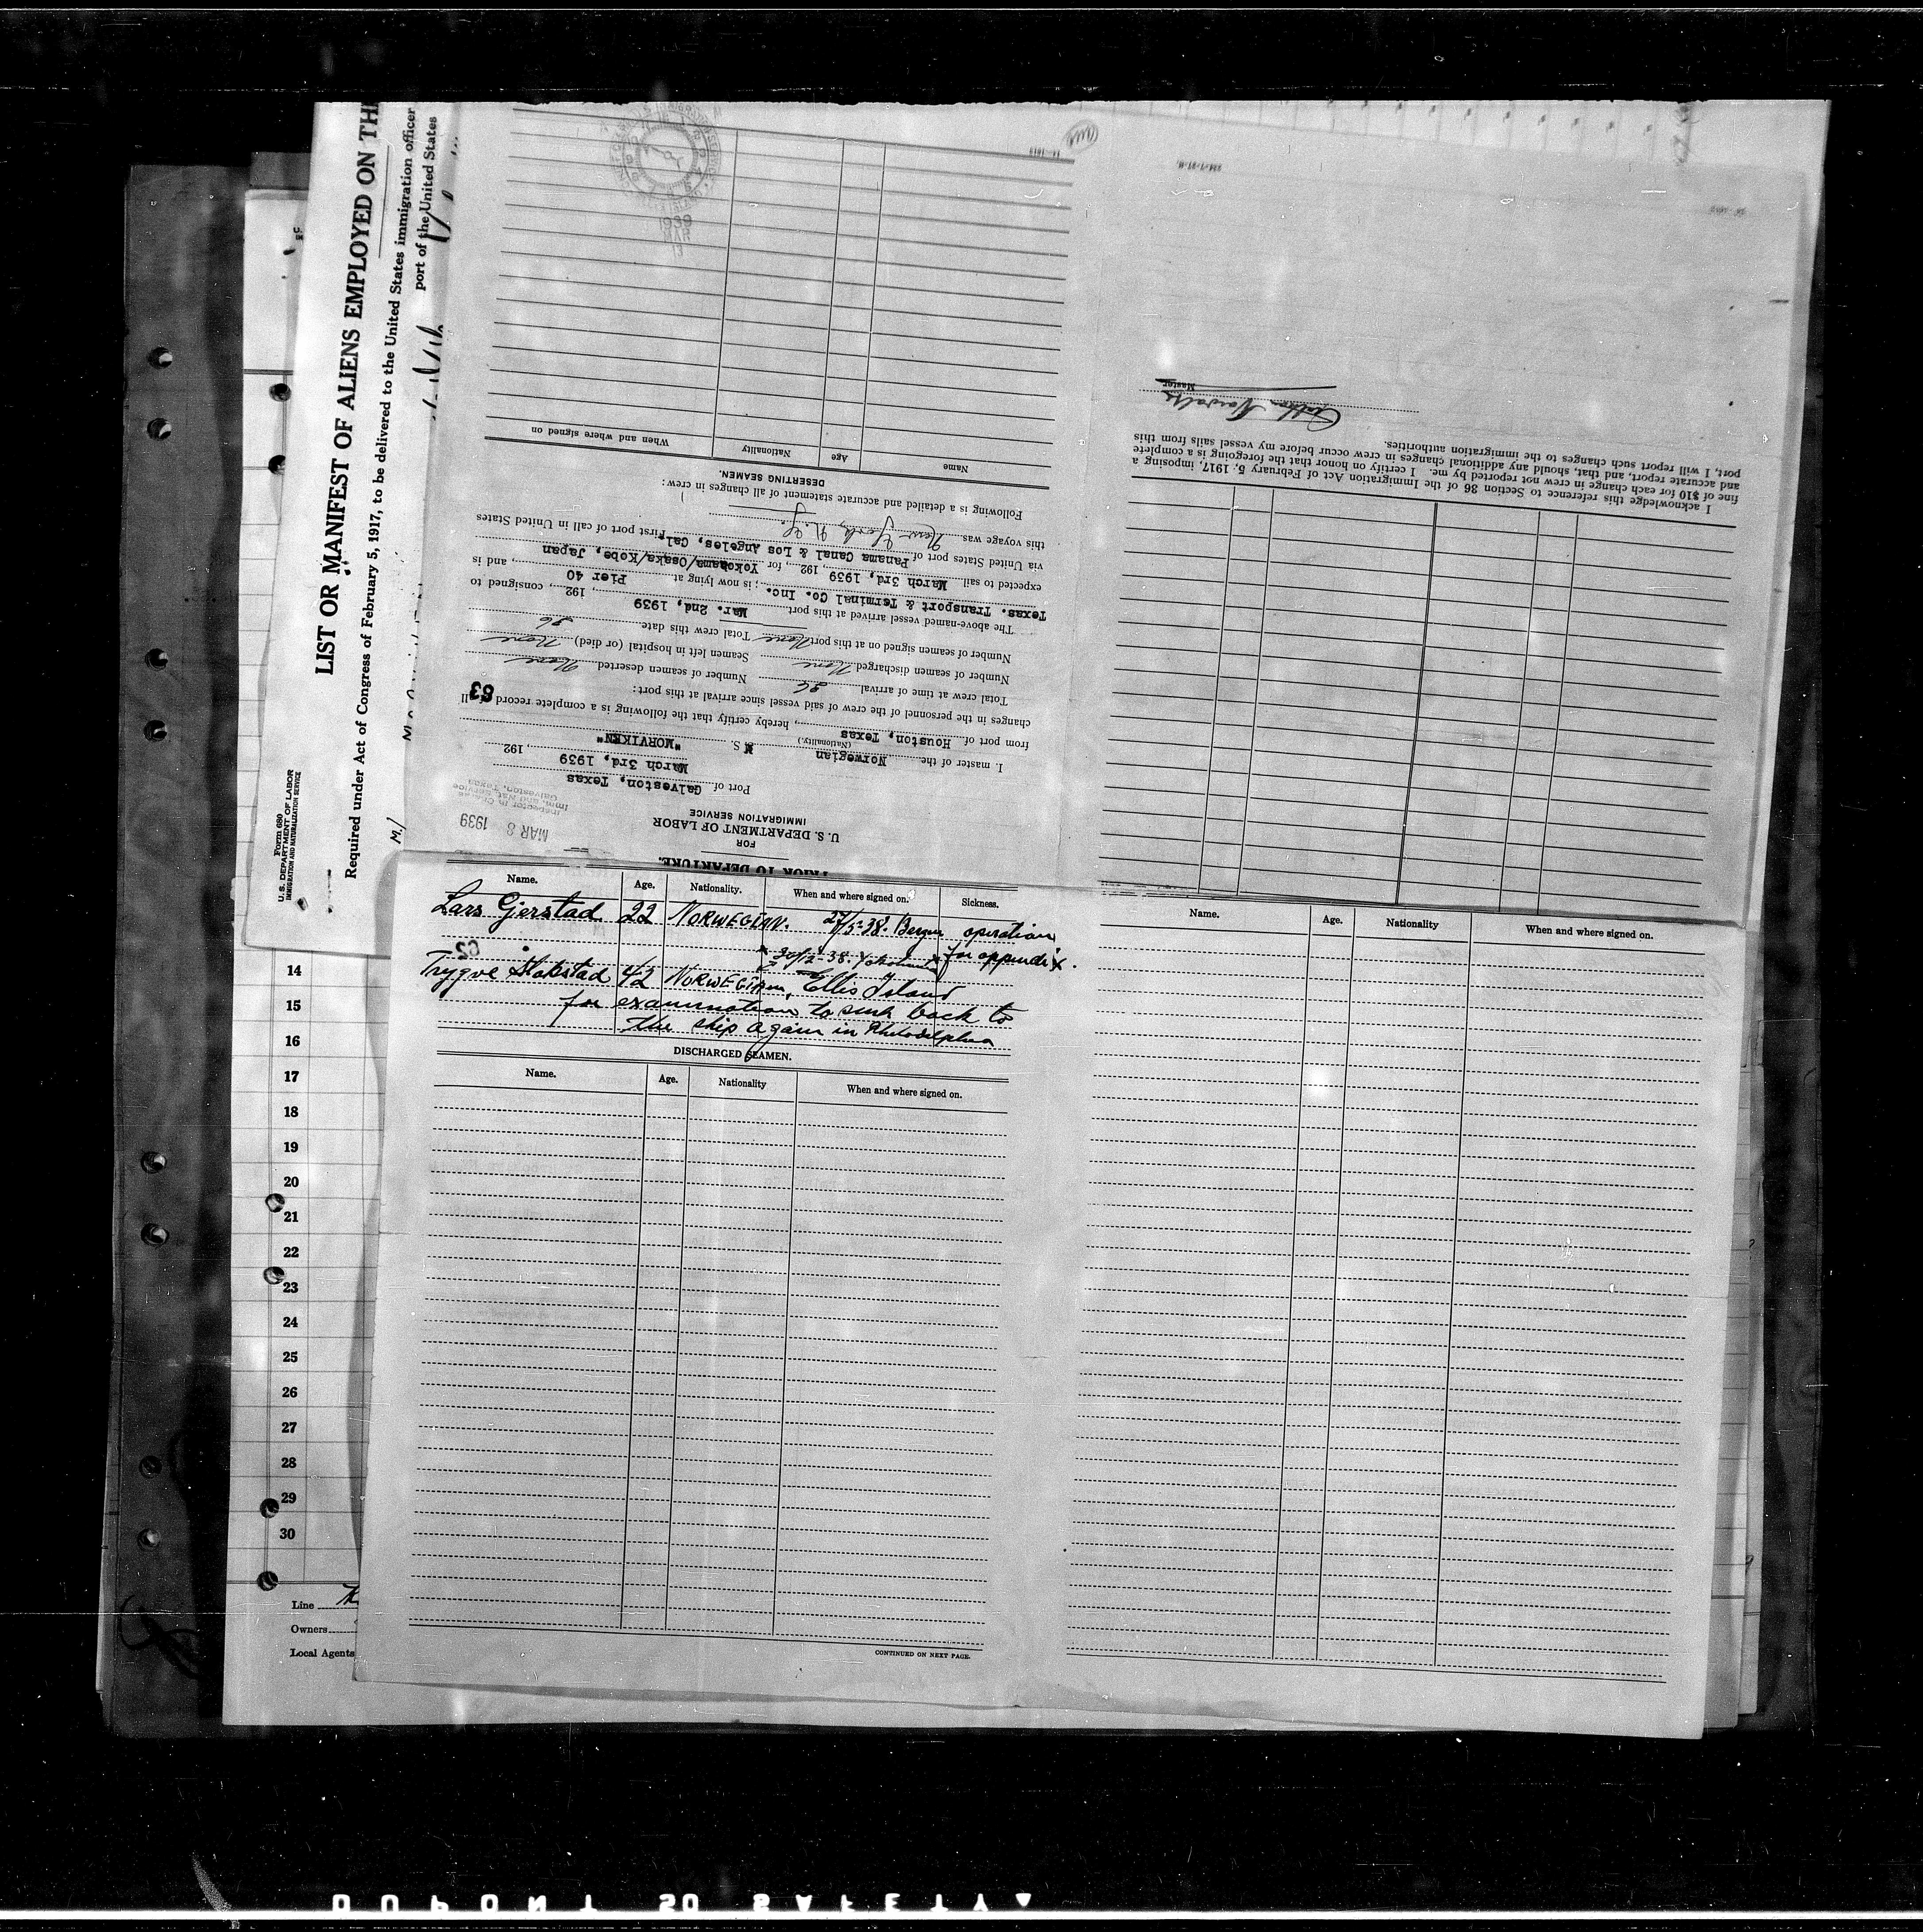 LIST OR MANIFEST OF ALIENS EMPLOYED ON TH
Required under Act of Congress of February 5, 1917, to be delivered to the United States immigration officer
port of the United States
Form 680
U.S. DEPARTMENT OF LABOR
IMMIGRATION AND NATURALIZATION SERVICE
PRIOR TO DEPARTURE.
FOR
U. S. DEPARTMENT OF LABOR
IMMIGRATION SERVICE
MAR 8 1939
Inspector in Charge
Imm. and Nat. Service
Galveston, Texas
Port of Galveston, Texas
March 3rd, 1939, 192
I, master of the Norwegian M S. "MORVIKEN"
(Nationality.)
from port of Houston, Texas, hereby certify that the following is a complete record of all
changes in the personnel of the crew of said vessel since arrival at this port:
83
Total crew at time of arrival 36 Number of seamen deserted None
Number of seamen discharged None Seamen left in hospital (or died) None
Number of seamen signed on at this port None Total crew this date 36
The above-named vessel arrived at this port Mar. 2nd, 1939, 192, consigned to
Texas. Transport & Terminal Co. Inc. ; is now lying at Pier 40, and is
expected to sail March 3rd, 1939, 192, for Yokohama/Osaka/Kobe, Japan
via United States port of Panama Canal & Los Angeles, Cal. First port of call in United States
this voyage was New York, N.Y.
Following is a detailed and accurate statement of all changes in crew:
DESERTING SEAMEN.
Name Age Nationality When and where signed on
1939
MAR
I acknowledge this reference to Section 36 of the Immigration Act of February 5, 1917, imposing a
fine of $10 for each change in crew not reported by me. I certify on honor that the foregoing is a complete
and accurate report, and that, should any additional changes in crew occur before my vessel sails from this
port, I will report such changes to the immigration authorities.
Master
Name. Age. Nationality. When and where signed on. Sickness.
Lars Gjerstad 22 NORWEGIAN. 27/5-38. Bergen operation
for appendix.
Trygve 42 NORWEGIAN, Ellis Island
for examination to send back to
the ship again in Philadelphia
DISCHARGED SEAMEN.
Name. Age. Nationality When and where signed on.
CONTINUED ON NEXT PAGE.
Name. Age. Nationality When and where signed on.
14
15
16
17
18
19
20
21
22
23
24
25
26
27
28
29
30
Line
Owners
Local Agents